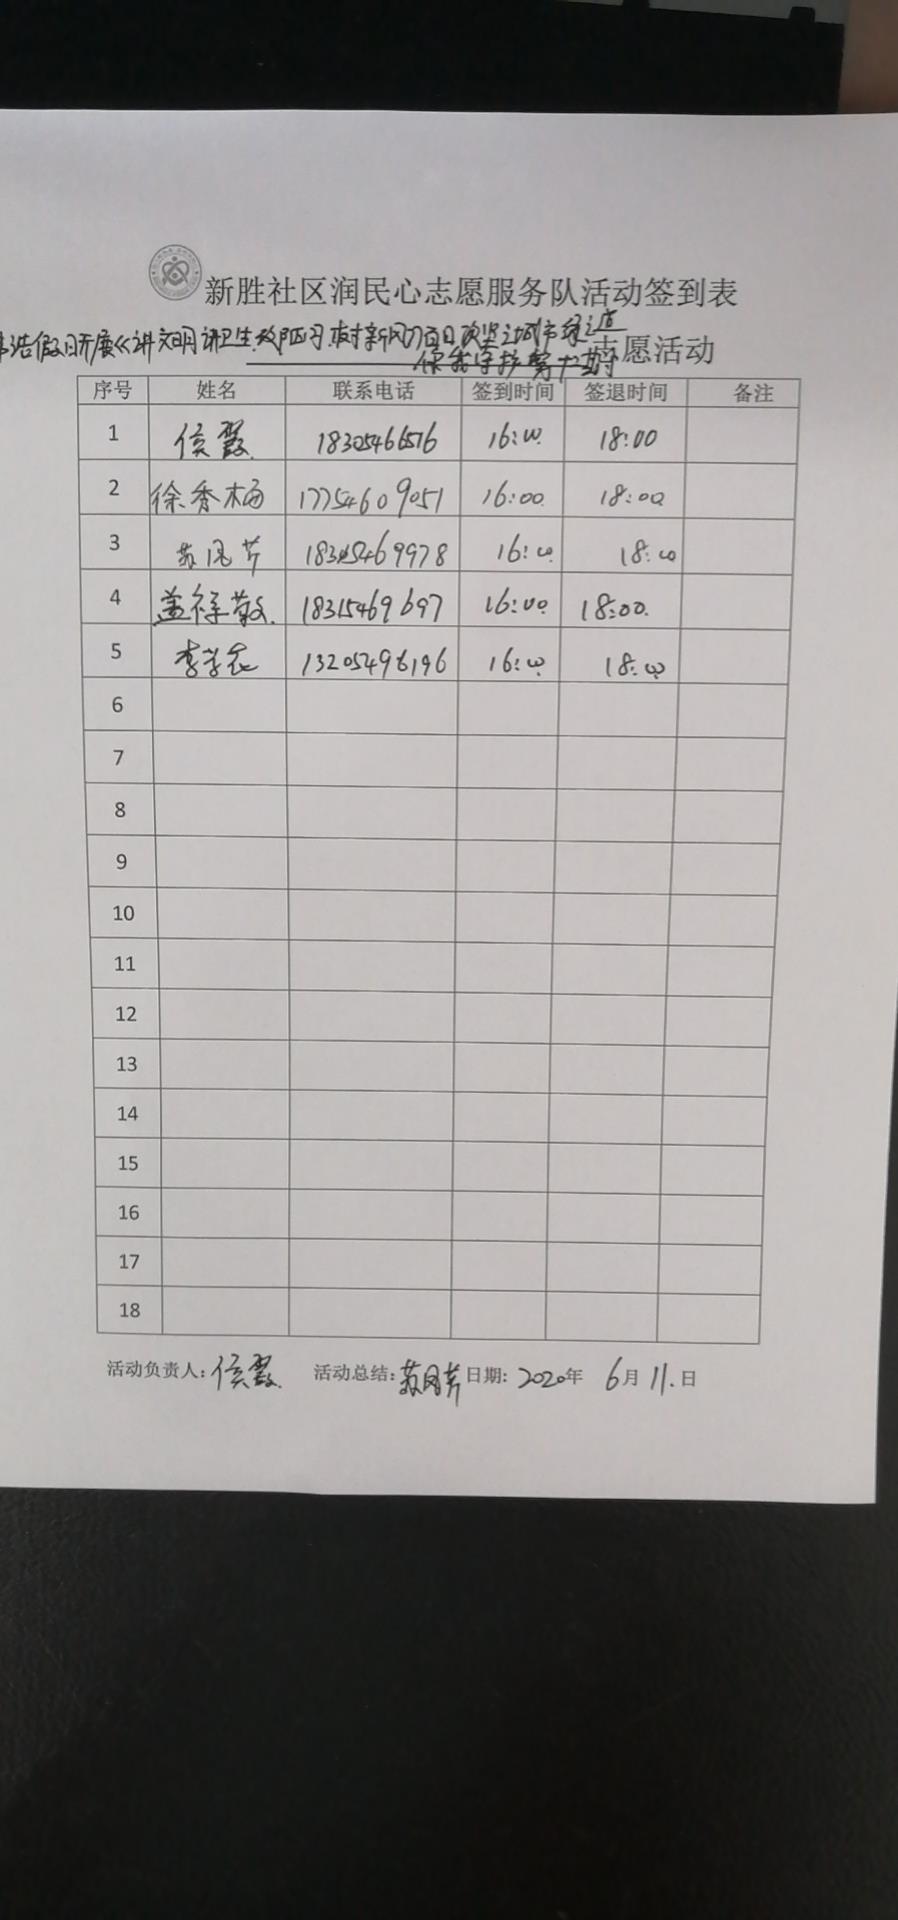 新胜社区润民心志愿服务队活动签到表
浩假日开展《讲文明讲卫生改陋习树新风》百日攻坚之城市绿之道
你我守护第十二期
志愿活动
序号 姓名 联系电话 签到时间 签退时间 备注
1 侯霞 18305466576 16:00 18:00
2 徐秀梅 17754609051 16:00 18:00
3 苏凤芹 18305469978 16:00 18:00
4 盖禄敏 18315469697 16:00 18:00
5 13205496196 16:00 18:00
6
7
8
9
10
11
12
13
14
15
16
17
18
活动负责人:侯霞 活动总结:苏凤芹 日期:2020年 6月11.日